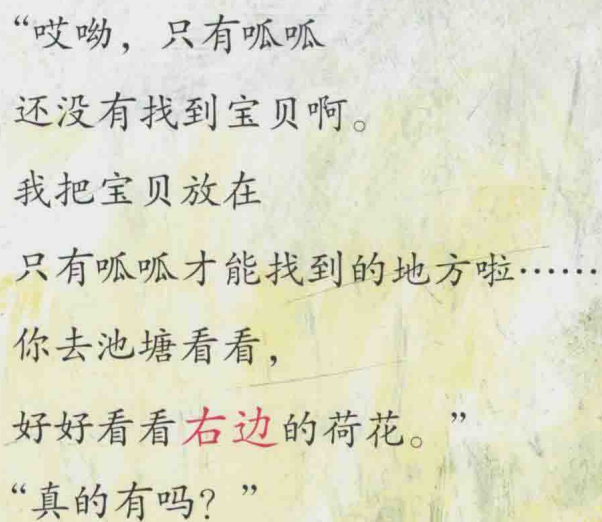 “哎呦，只有呱呱
还没有找到宝贝啊。
我把宝贝放在
只有呱呱才能找到的地方啦……
你去池塘看看，
好好看看右边的荷花。”
“真的有吗？”